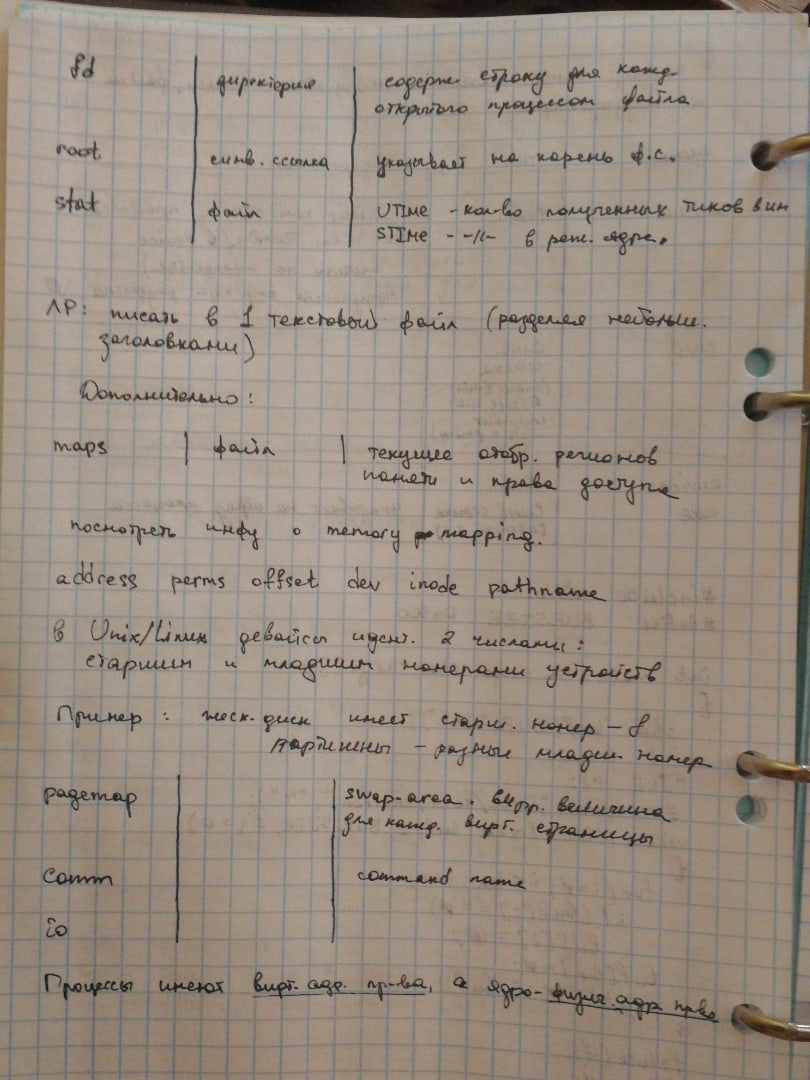 fd | директория | содерж. строку для кажд.
открытого процессом файла
root | симв. ссылка | указывает на корень ф.с.
stat | файл | UTIMe - кол-во полученных тиков в
STIMe - -//- в реж. ядра.
ЛР: писать в 1 текстовый файл (разделяя небольш.
заголовками)
Дополнительно:
maps | файл | текущее отобр. регионов
памяти и права доступа
посмотреть инфу о memory mapping.
address perms offset dev inode pathname
в Unix/Linux девайсы идент. 2 числами:
старшим и младшим номерами устройств
Пример: жеск. диск имеет старш. номер - 8
партишены - разные младш. номер
pagemap | | swap-area. вирр. величина
для кажд. вирт. страницы
comm | | command name
io
Процессы имеют вирт. адр. пр-ва, а ядро - физич. адр. прво